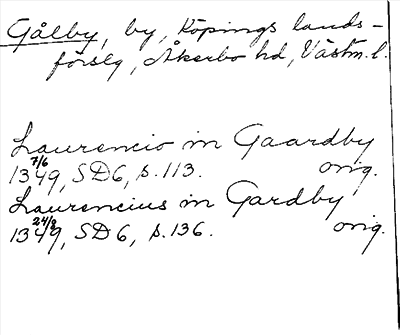 Gålby, by, Köpings lands-
förslg, Åkerbo hd, Västm. l.
Laurencio in Gaardby
1349 7/6, SD6, s. 113. orig.
Laurencius in Gardby
1349 24/8, SD6, s. 136. orig.